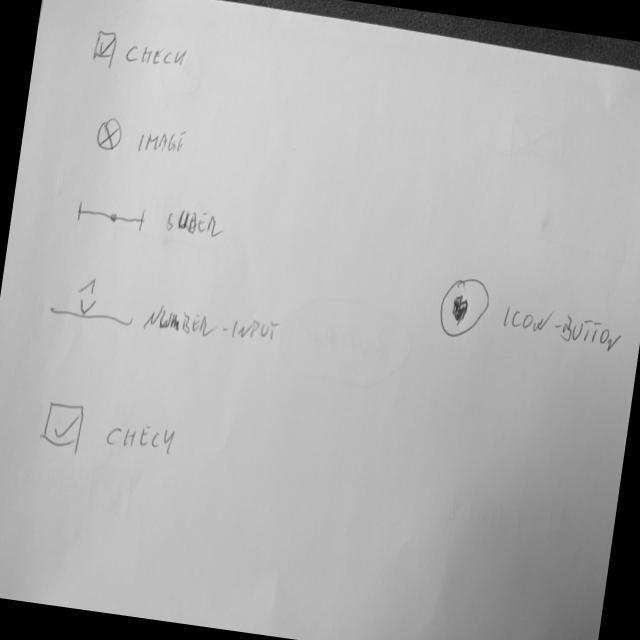 CHECK
IMAGE
SLIDER
NUMBER-INPUT
ICON-BUTTON
CHECK